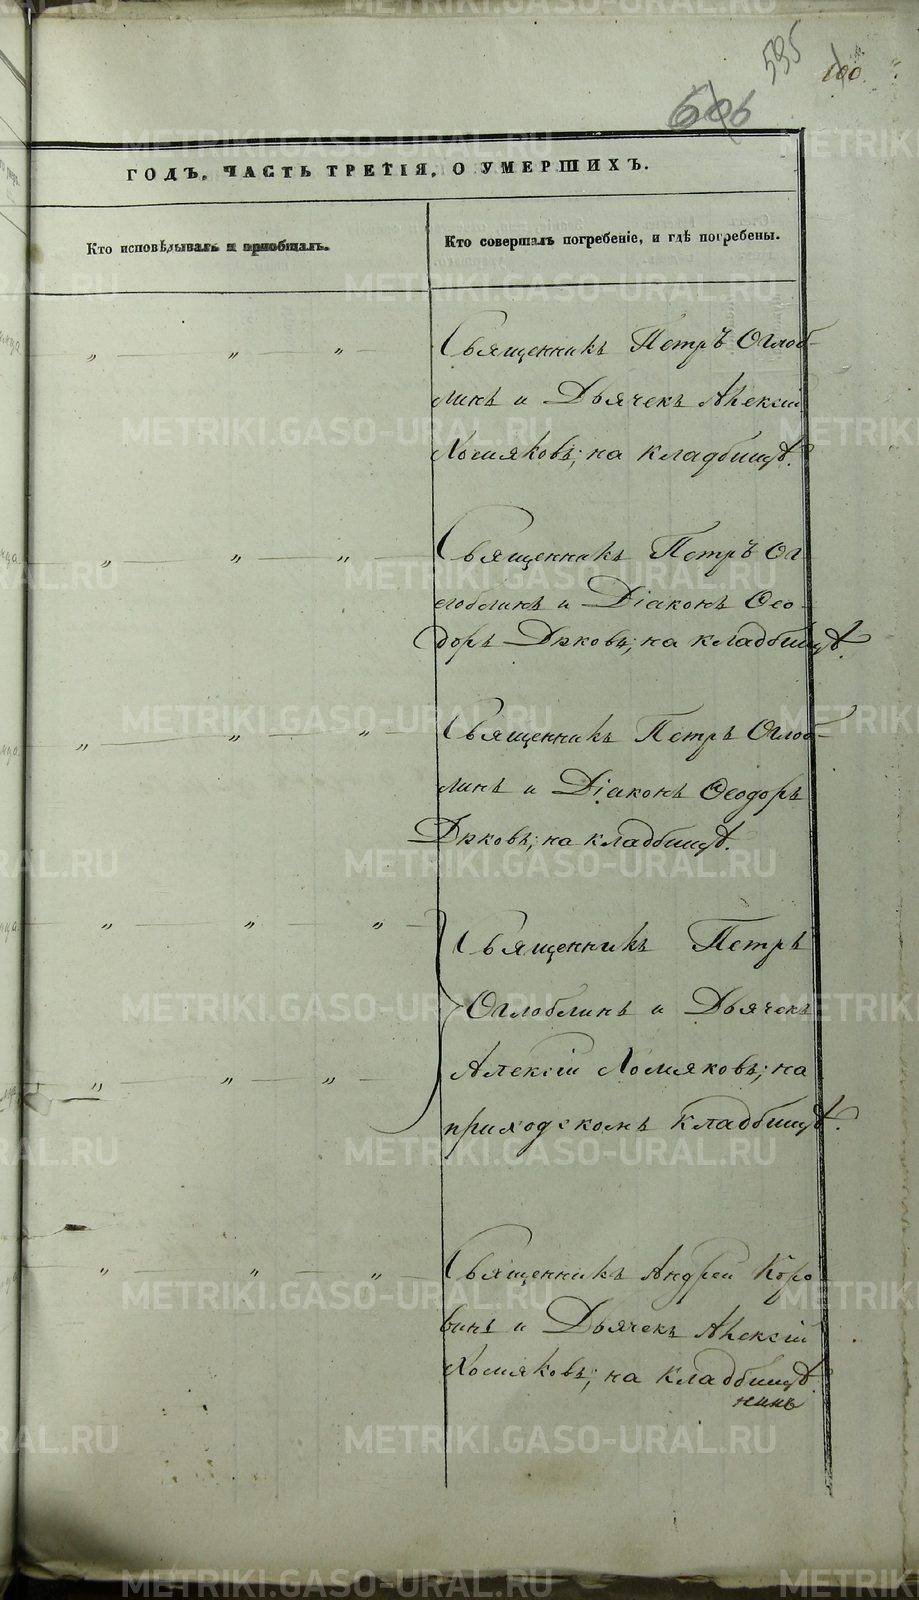 595
606
100
ГОДЪ, ЧАСТЬ ТРЕТІЯ, О УМЕРШИХЪ.
Кто исповѣдывалъ и пріобщалъ.
Кто совершалъ погребеніе, и гдѣ погребены.
" " "
Священникъ Петръ Оглоб-
линъ и Дьячекъ Алексій
Хомяковъ; на кладбищѣ.
" " "
Священникъ Петръ Ог
лоблинъ и Діаконъ Ѳео-
доръ Дяковъ; на кладбищѣ.
" " "
Священникъ Петръ Оглоб-
линъ и Діаконъ Ѳеодоръ
Дяковъ; на кладбищѣ.
" " "
Священникъ Петръ
Оглоблинъ и Дьячекъ
" " "
Алексій Хомяковъ; на
приходскомъ кладбищѣ.
" " "
Священникъ Андрей Коро
винъ и Дьячекъ Алексій
Хомяковъ; на кладбищѣ.
METRIKI.GASO-URAL.RU